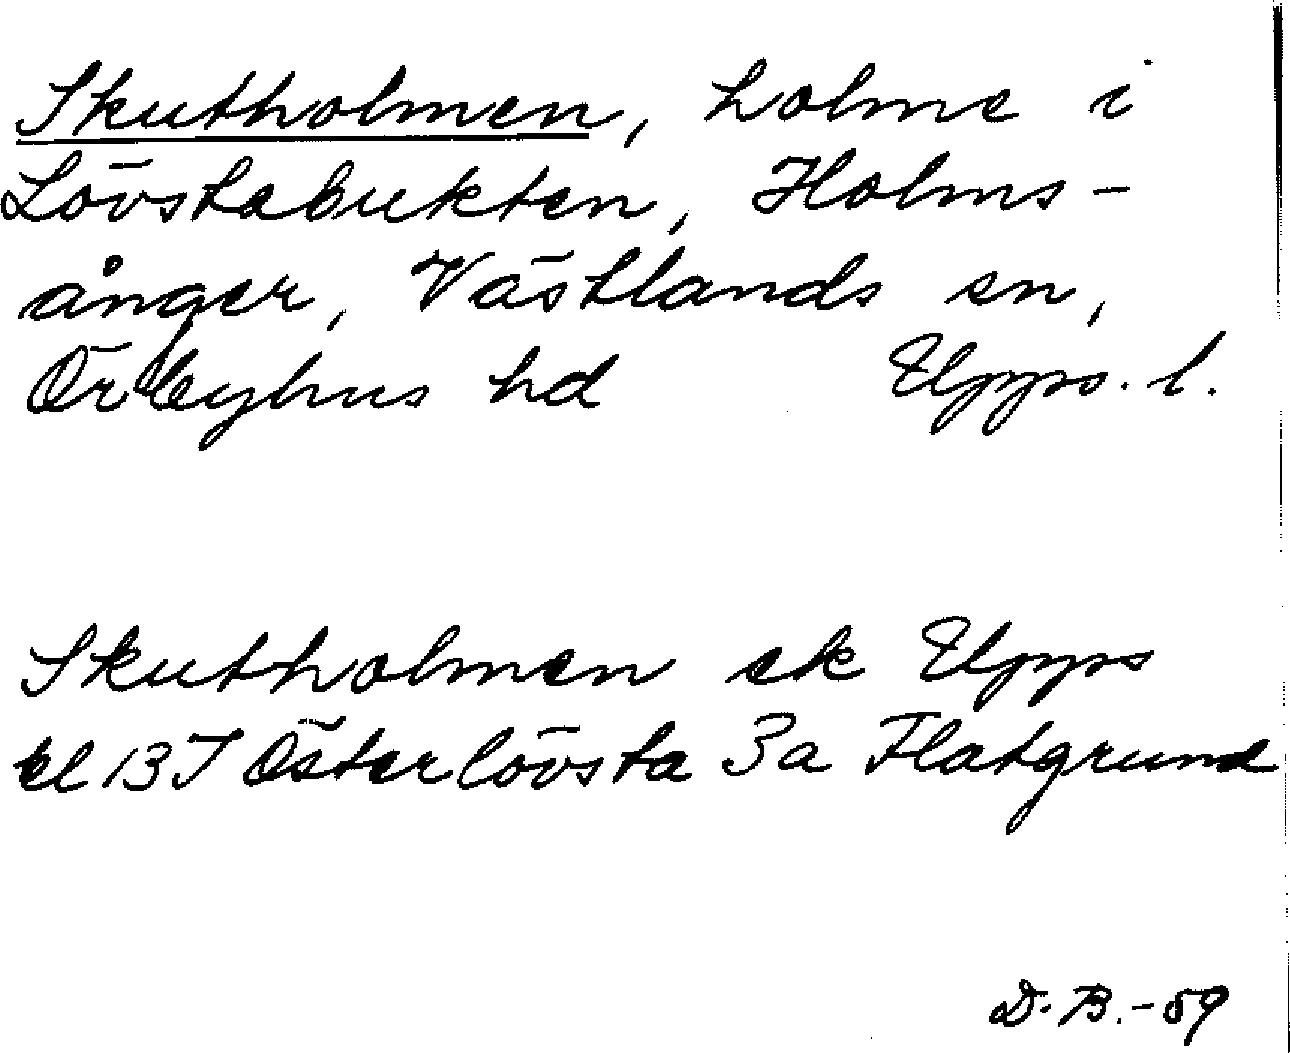 Skutholmen, holme i
Lövstabukten, Holms-
ånger, Västlands sn,
Örbyhus hd Upps. l.
Skutholmen ek Upps
bl 137 Österlövsta 3a Flatgrund
D. B. -59